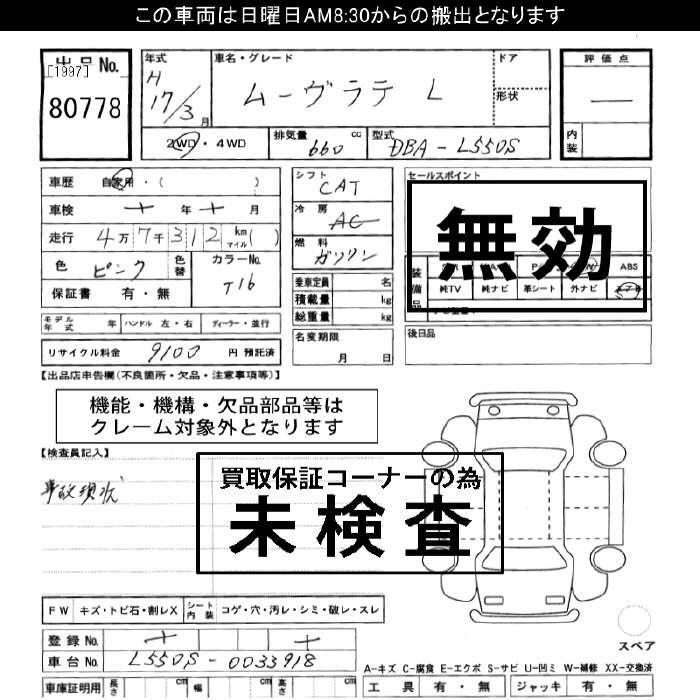 この車両は日曜日AM8:30からの搬出となります
出品No.
[1997]
80778
年式
H
17/3 月
車名・グレード
ムーヴラテ L
ドア
形状
評価点
—
内装
2WD・4WD
排気量 660 cc
型式 DBA-L550S
車歴 自家用・( )
車検 年 月
走行 4万7千312 km マイル( )
色 ピンク
色替
カラーNo. T16
保証書 有・無
シフト CAT
冷房 AC
燃料 ガソリン
乗車定員 名
積載量 kg
総重量 kg
セールスポイント
無効
装備品
ABS
純TV 純ナビ 革シート 外ナビ
モデル年式 年 ハンドル 左・右 ディーラー・並行
名変期限
月 日
後日品
リサイクル料金 9100 円 預託済
【出品店申告欄(不良箇所・欠品・注意事項等)】
機能・機構・欠品部品等は
クレーム対象外となります
【検査員記入】
事故現状
買取保証コーナーの為
未検査
FW キズ・トビ石・割レX シート内装 コゲ・穴・汚レ・シミ・破レ・スレ
登録No.
車台No. L550S-0033918
スペア
A-キズ C-腐食 E-エクボ S-サビ U-凹ミ W-補修 XX-交換済
車庫証明用 長さ cm 幅 cm 高さ cm
工具 有・無 ジャッキ 有・無